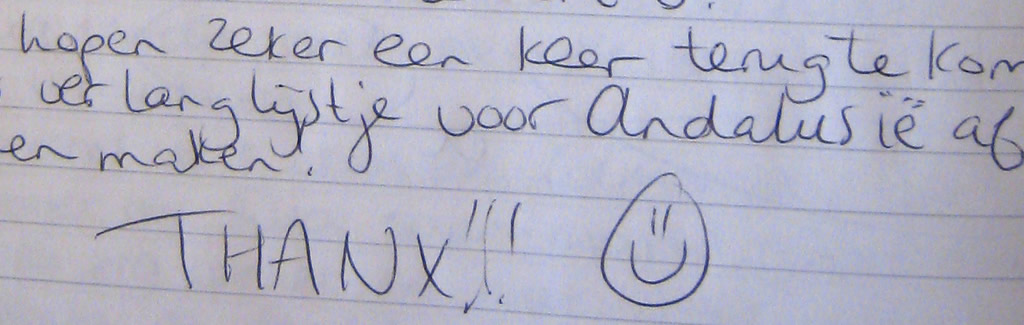 hopen zeker een keer terug te kom
verlanglijstje voor Andalusië af
en maken!
THANX!!!